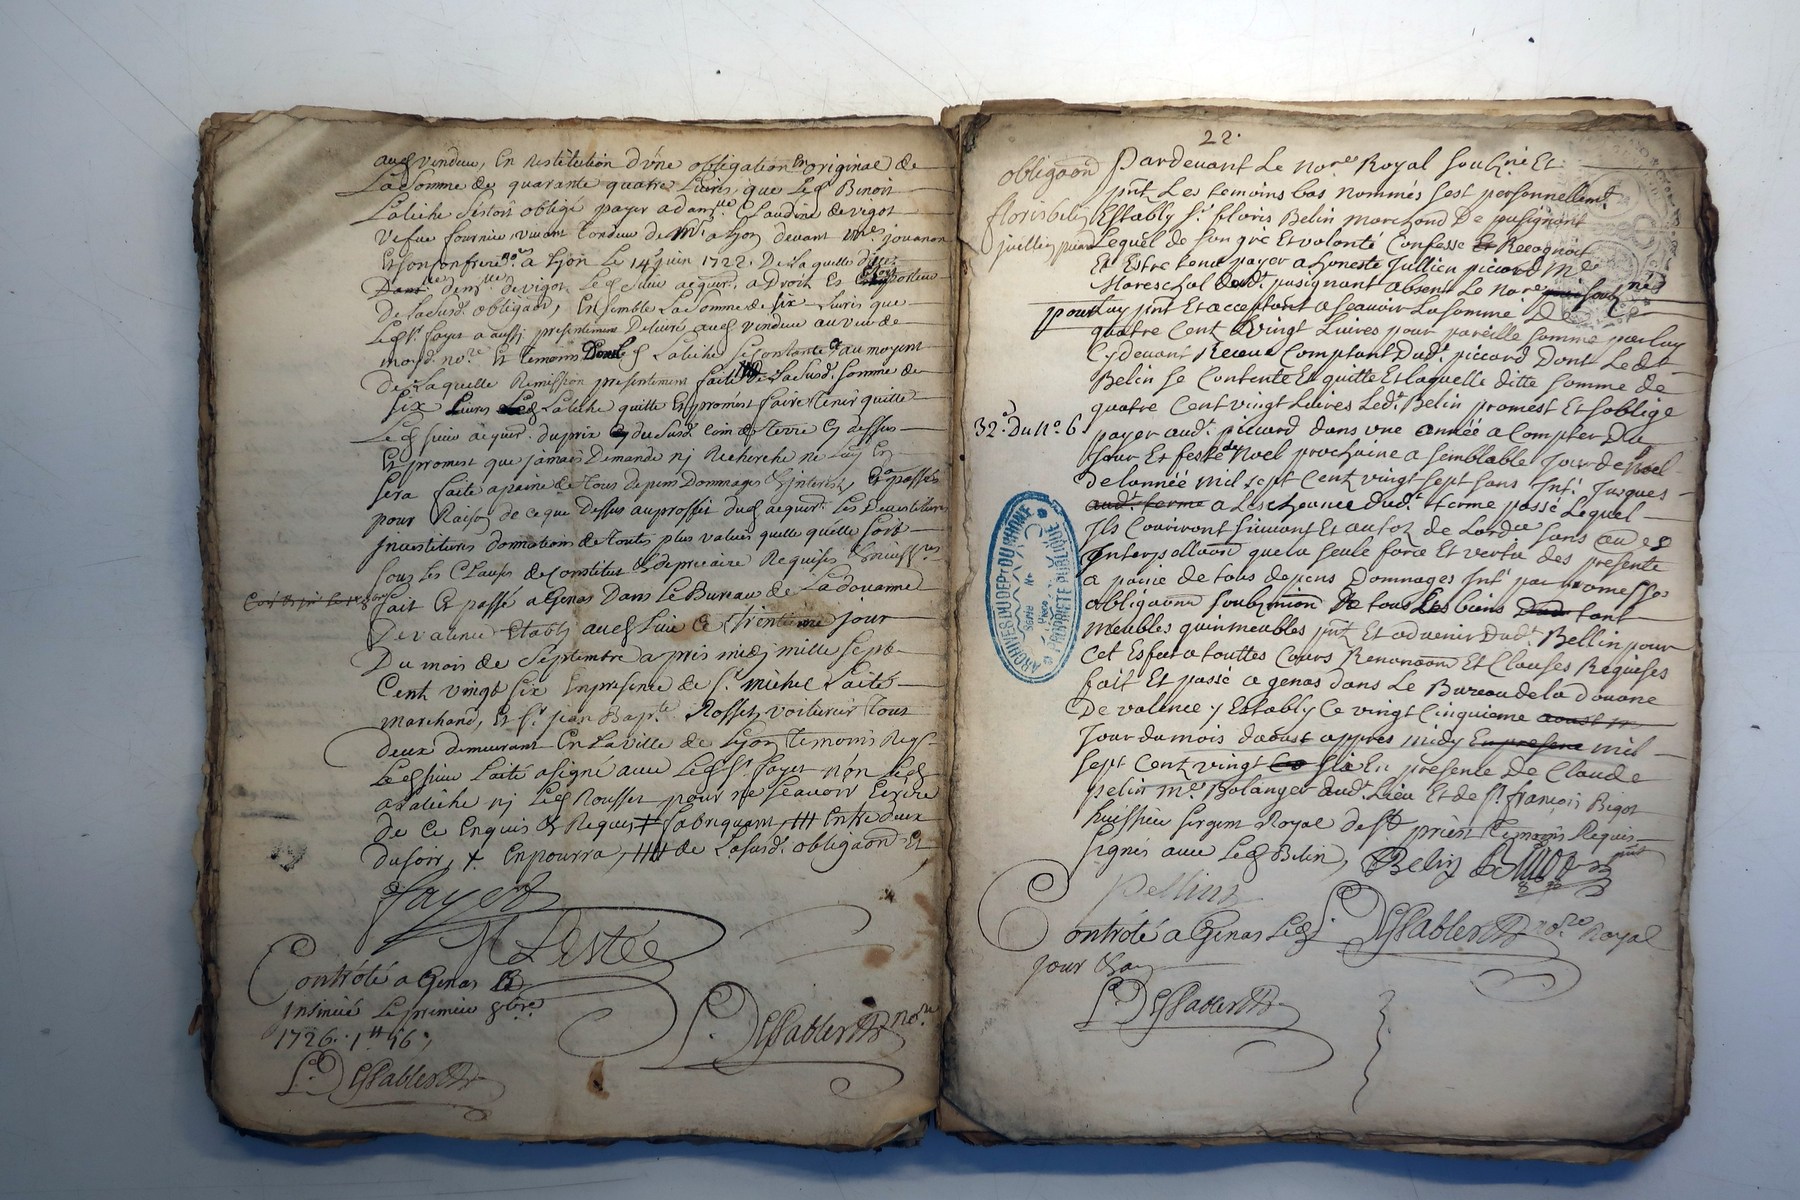 aud vendeur, En restitution d'vne obligation En original de
La somme de quarante quatre Livres, que Led Benoit
Laliche s'estoit obligé payer a dam.lle Claudine de vigot
Vefue fournier, viuant tondeur de a Lyon devant M.es jouanon
Et son confrere no.res a Lyon Le 14 juin 1722. De Laquelle ditte
dem.lle de vigot Led sieur acquer.r a Droit Et
de La susd. obligaon, Ensemble La somme de six Livres que
Led s.r fayet a aussy presentement Deliuré aud vendeur au veu de
moyd. no.re Et temoins Dont Led Laliche se contante Et au moyent
De Laquelle Remission presentement faite de La susd. somme de
six Livres Led Laliche quitte Et promest faire tenir quitte
Led sieur acquer.r du prix du susd. coin de terre cy dessus
Et promest que jamais Demande nj Recherche ne Luy En
sera faite a peine de tous depens Dommages & interest,
pour Raison de ce que Dessus au proffit dud acquer.r Les Deuestitures
Jnuestitures donnations de toutes plus values quelle quelle soit
souz Les Clauses de Constitut Et de precaire Requises
fait Et passé a Genas Dans Le Bureau de La douanne
De valence Etably aud Lieu Ce trentieme jour
Du mois de Septembre apris midj mille sept
Cent vingt six En presence de s.r michel Laité
marchand, Et s.r jean Bap.te Rosset voiturier tous
deux demeurant En La ville de Lyon temoins Req.s
Led sieur Laité a signé auec Led s.r fayet non Led
Laliche nj Led Rousset pour ne sçauoir Ecrire
de Ce Enquis Et Requis # fabriquant, ### Entre deux
du soir, + En pourra, #### de La susd. obligaon Et
fayet
Contrôlé a Genas Et
Insinué Le premier 8bre
1726.
L. DesSables
L. DesSables no.re
22.
obligaon
floris belin
juillien picard
Pardevant Le no.re Royal souz.né Et
p.nt Les temoins bas nommés s'est personnellem.t
Estably S.r floris Belin marchand De pusignant
Lequel de son gré Et volonté Confesse Et Recognoit
Et Estre tenu payer a honeste Jullien picard M.e
Mareschal dud.t pusignant absent Le no.re souz.né
pour Luy p.nt Et acceptant a sçauoir La somme De
quatre Cent vingt Liures pour pareille somme par Luy
Cy devant Receue Comptant Dud.t piccard Dont Led.t
Belin se Contente Et quitte Et Laquelle ditte somme de
quatre Cent vingt Liures Led.t Belin promest Et s'oblige
32.e Du N.o 6
payer aud.t piccard dans vne année a Compter Du
Jour Et feste de Noel prochaine a semblable Jour de Noel
De L'année mil sept Cent vingt sept sans Int.t Jusques
aud.t terme a L'escheance dud.t terme passé Lequel
Ils Courront suiuant Et au foz de L'ordce sans autre
Interpellaon que La seule force Et vertu des presente
a peine de tous depens Dommages Int.t par promesses
obligaons soubmion De tous Les biens tant
meubles qu'inmeubles p.nt Et aduenir Dud.t Bellin pour
Cet Esfet a touttes Cours Renonçaon Et Clauses Requises
fait Et passé a genas dans Le Bureau de La Douane
De valence y Estably Ce vingt Cinquieme
Jour du mois daoust appres midy En presence mil
sept Cent vingt six En presence De Claude
pelin M.e Bolanger aud.t Lieu Et de s.r françois Bigot
huissier sergent Royal de s.t priest temoins Requis
signés auec Led Belin, Belin
Pellin
Contrôlé a Genas Led
jour
L. DesSables no.re Royal
L. DesSables
ARCHIVES DU DEPT DU RHONE
Série N°
PROPRIÉTÉ PUBLIQUE